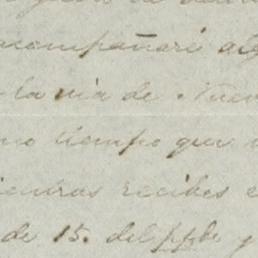 acompañaré alg
la via de Nuev
mo tiempo que
ientras recibes e
de 15. del ppdo y